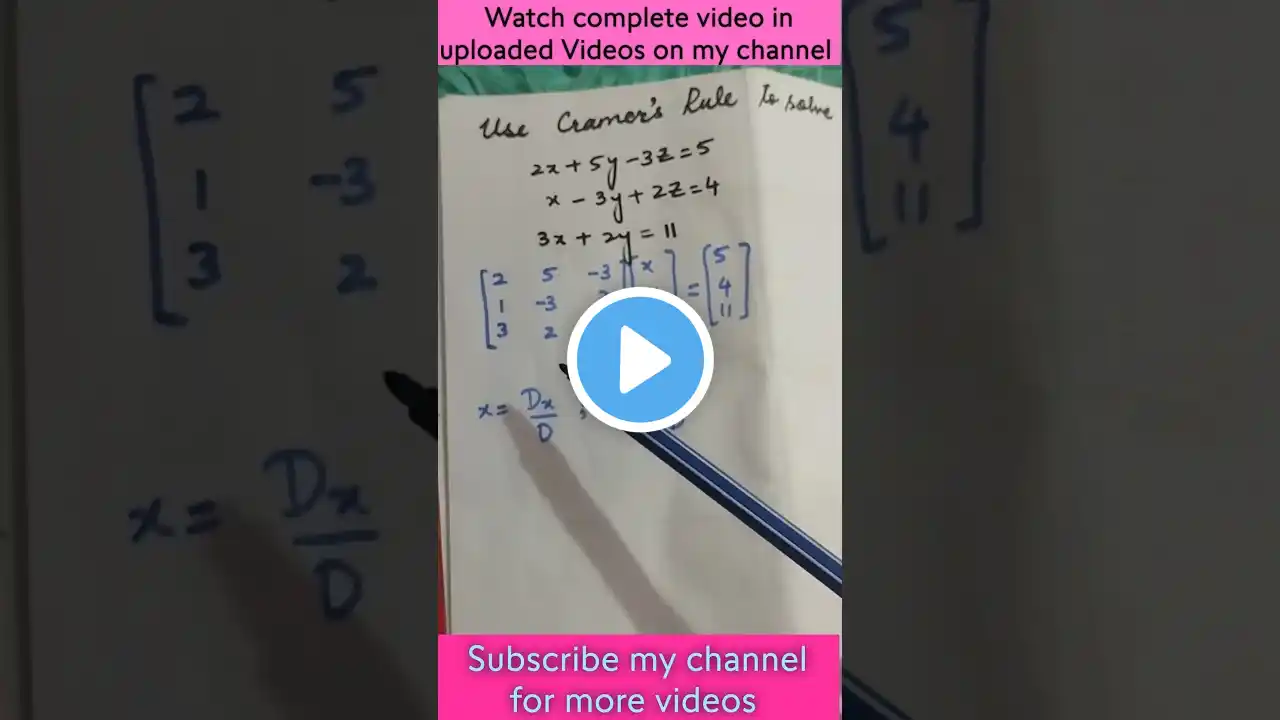 Watch complete video in
uploaded Videos on my channel
Use Cramer's Rule to solve
2x + 5y - 3z = 5
x - 3y + 2z = 4
3x + 2y = 11
2 5 -3 x = 5
1 -3 4
3 2 11
x = Dx / D
Subscribe my channel
for more videos